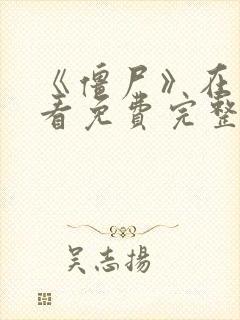 《僵尸》在
看免费完整
吴志扬